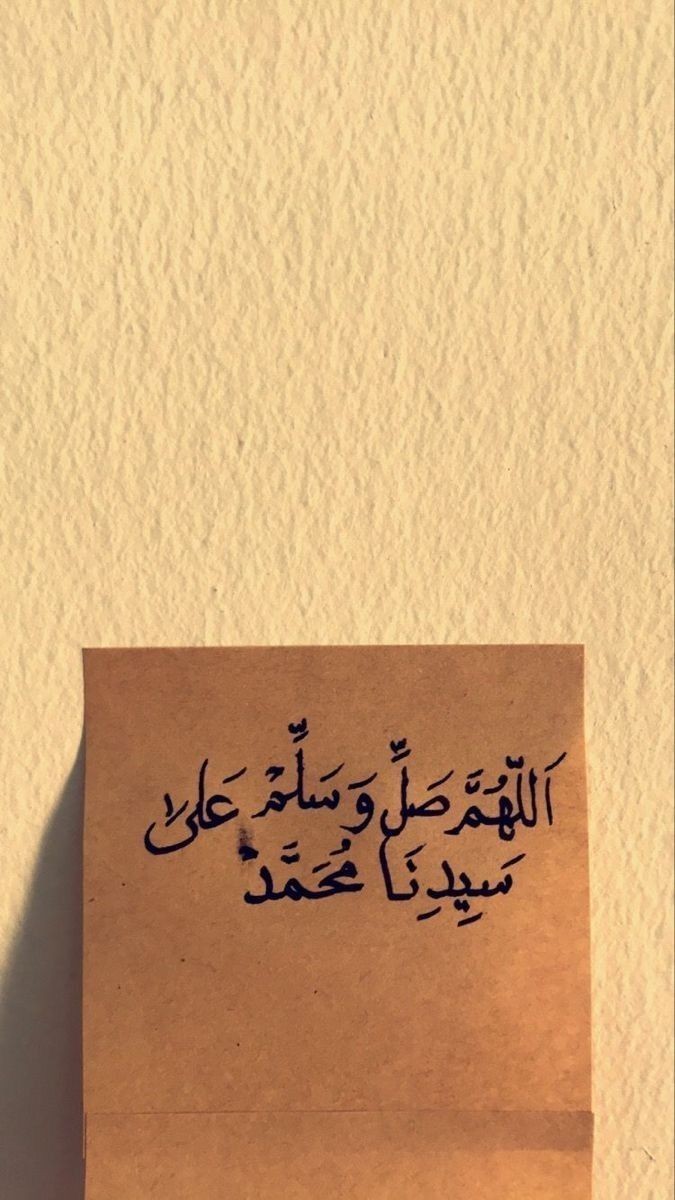 اَللّٰهُمَّ صَلِّ وَ سَلِّمْ عَلىٰ
سَيِدِنَا مُحَمَّدْ